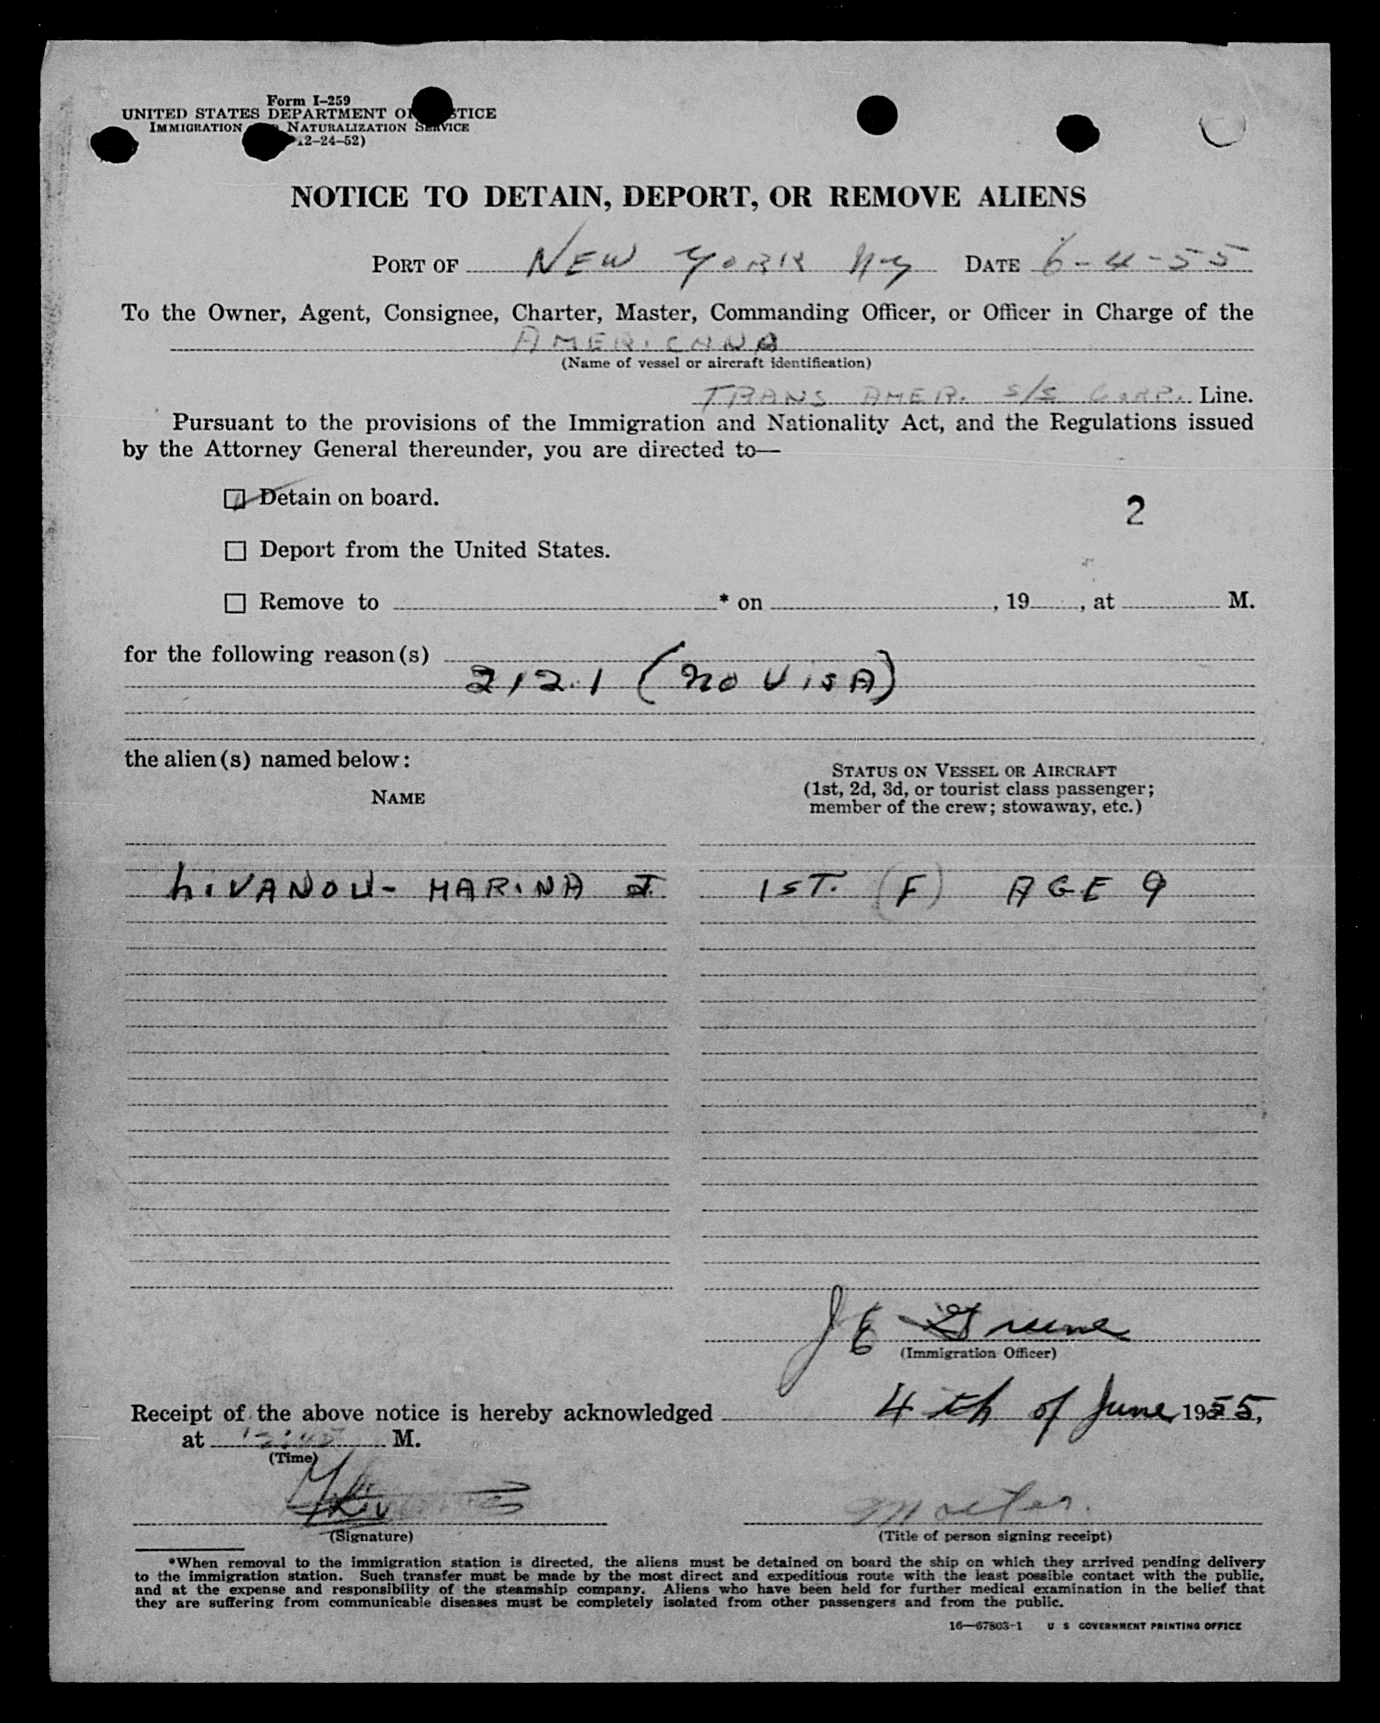 Form I-259
UNITED STATES DEPARTMENT OF JUSTICE
IMMIGRATION AND NATURALIZATION SERVICE
12-24-52)
NOTICE TO DETAIN, DEPORT, OR REMOVE ALIENS
PORT OF NEW YORK NY DATE 6-4-55
To the Owner, Agent, Consignee, Charter, Master, Commanding Officer, or Officer in Charge of the
AMERICANA
(Name of vessel or aircraft identification)
TRANS AMER. S/S CORP. Line.
Pursuant to the provisions of the Immigration and Nationality Act, and the Regulations issued
by the Attorney General thereunder, you are directed to—
Detain on board.
2
Deport from the United States.
Remove to * on , 19 , at M.
for the following reason(s)
212.1 (NO VISA)
the alien(s) named below:
STATUS ON VESSEL OR AIRCRAFT
(1st, 2d, 3d, or tourist class passenger;
member of the crew; stowaway, etc.)
NAME
LIVANOU- MARINA J. 1ST. (F) AGE 9
J E Greene
(Immigration Officer)
Receipt of the above notice is hereby acknowledged 4th of June 1955,
at 12:45 M.
(Time)
Master.
(Signature) (Title of person signing receipt)
*When removal to the immigration station is directed, the aliens must be detained on board the ship on which they arrived pending delivery
to the immigration station. Such transfer must be made by the most direct and expeditious route with the least possible contact with the public,
and at the expense and responsibility of the steamship company. Aliens who have been held for further medical examination in the belief that
they are suffering from communicable diseases must be completely isolated from other passengers and from the public.
16—67803-1 U S GOVERNMENT PRINTING OFFICE